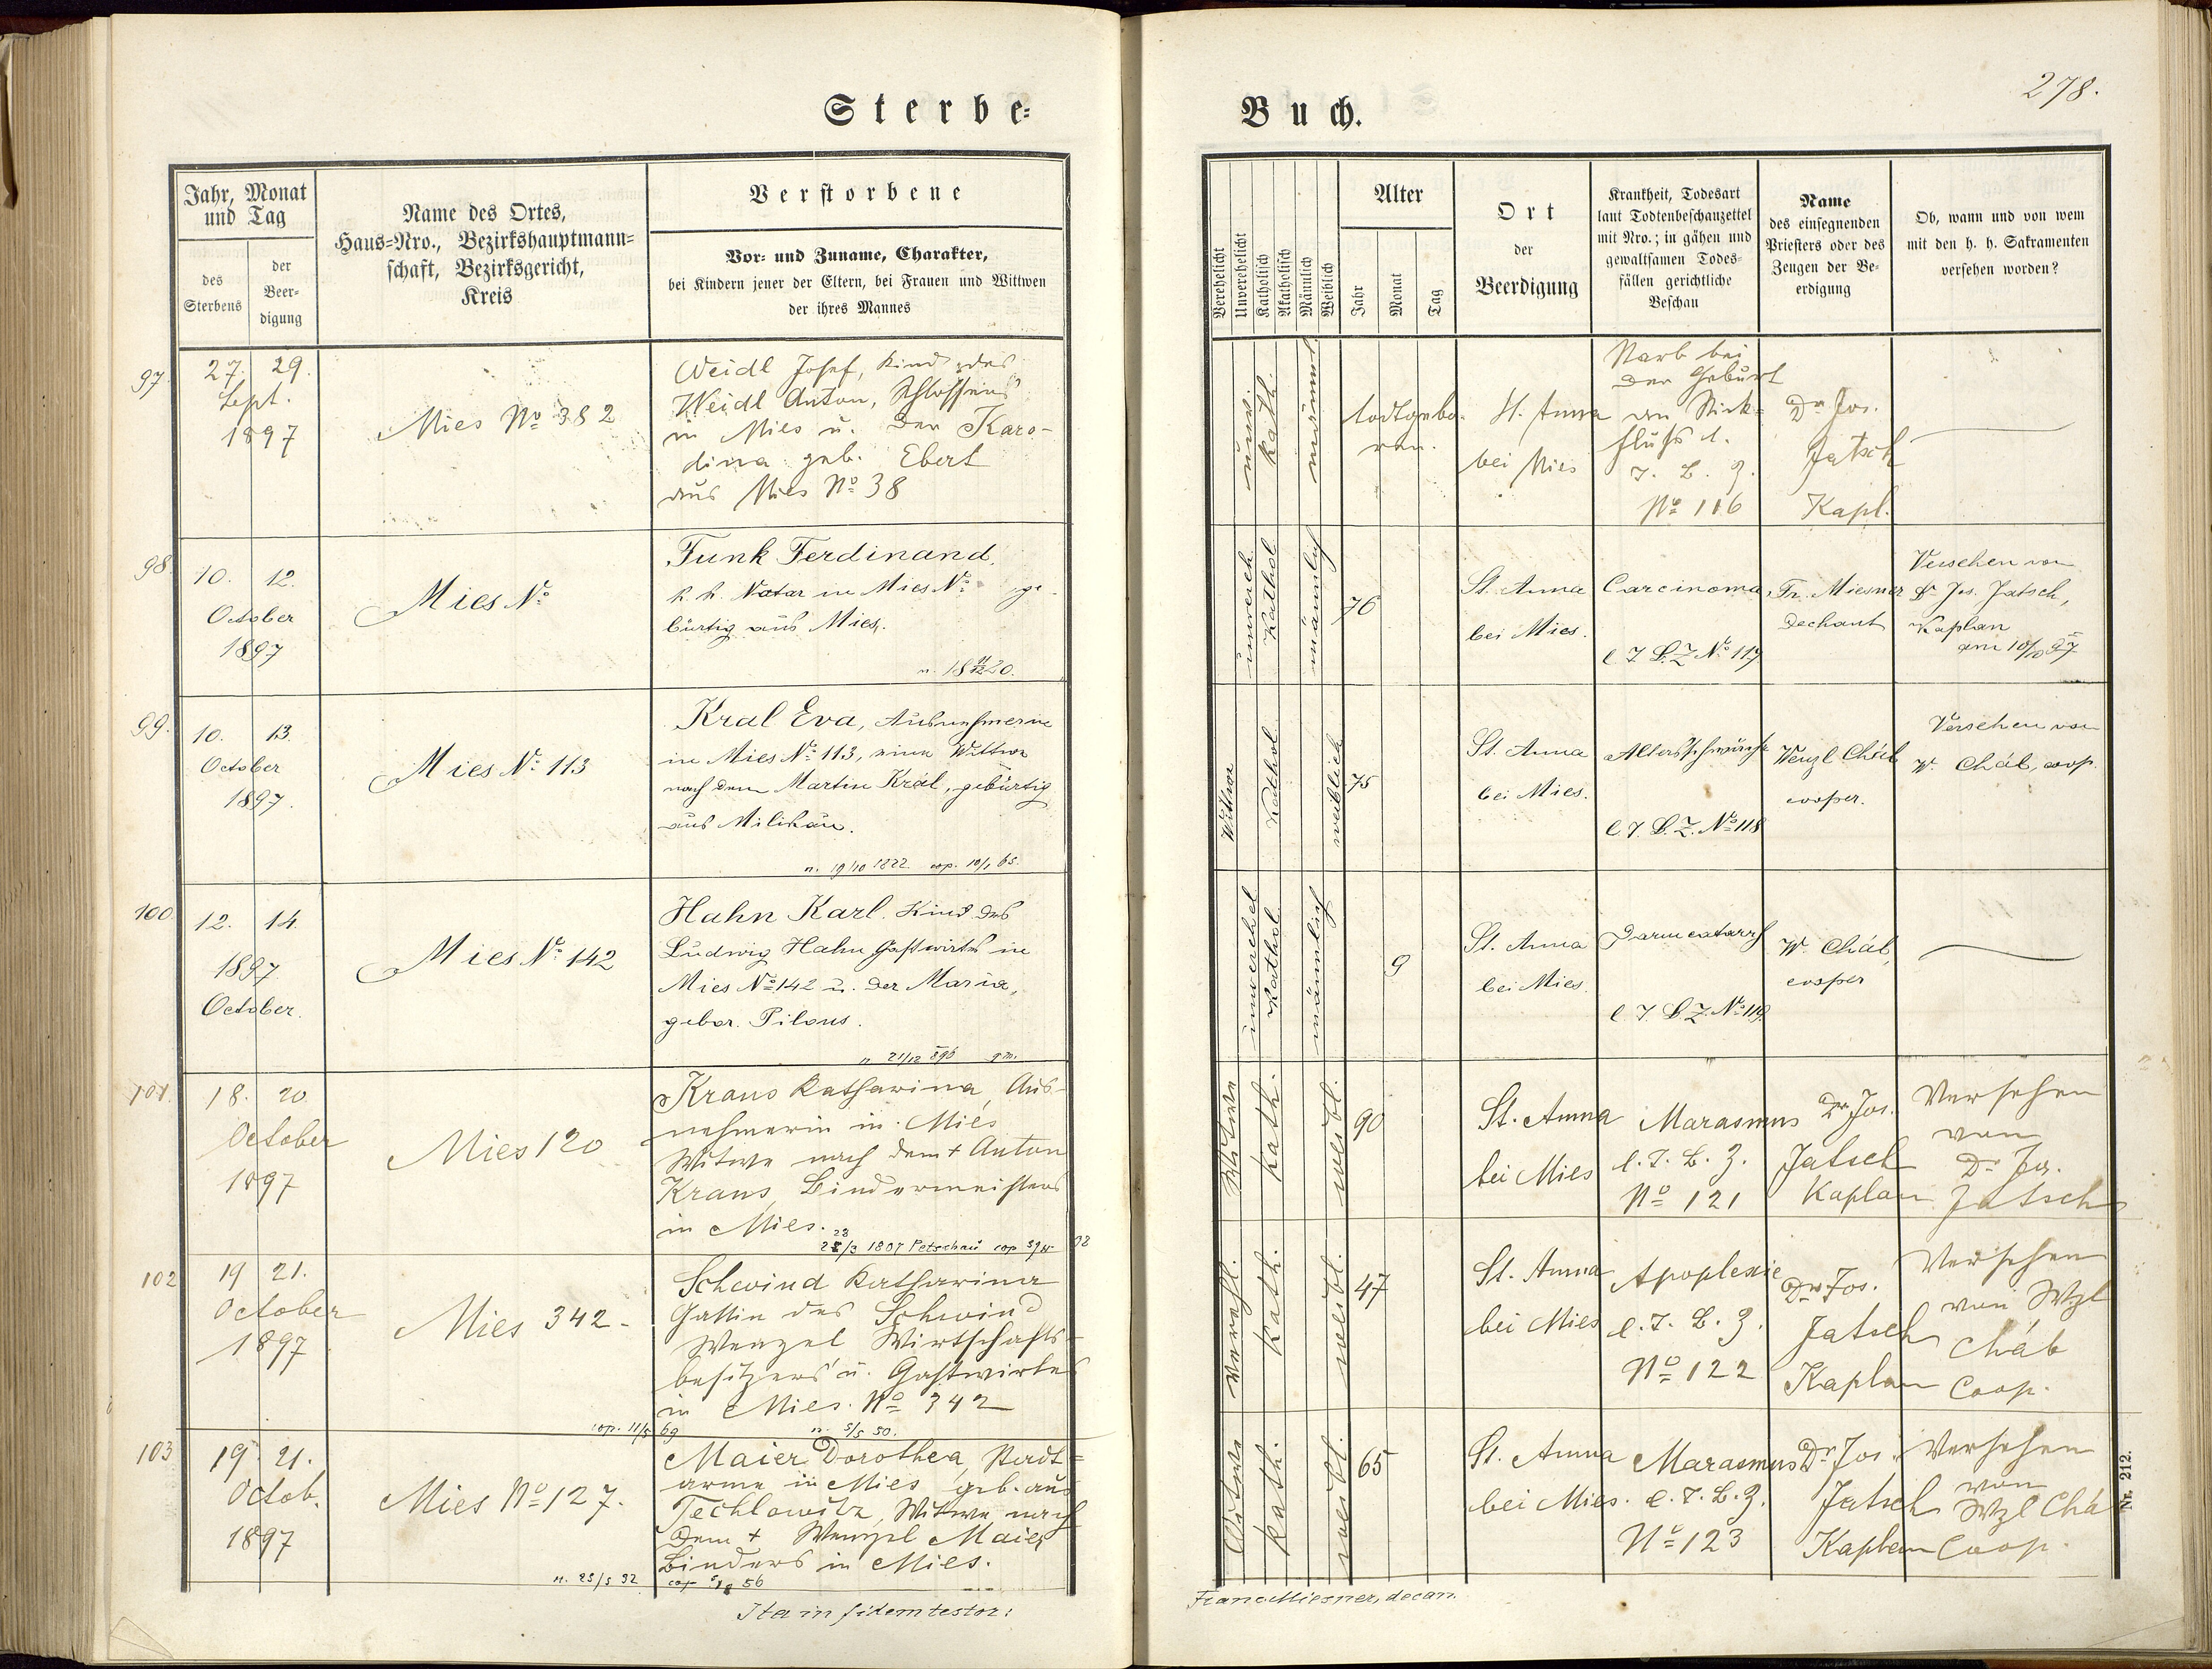 278.
Sterbe-
Buch.
Jahr, Monat
und Tag
des
Sterbens
der
Beer-
digung
Name des Ortes,
Haus-Nro., Bezirkshauptmann-
schaft, Bezirksgericht,
Kreis
Verstorbene
Vor- und Zuname, Charakter,
bei Kindern jener der Eltern, bei Frauen und Wittwen
der ihres Mannes
Verehelicht
Unverehelicht
Katholisch
Akatholisch
Männlich
Weiblich
Alter
Jahr
Monat
Tag
Ort
der
Beerdigung
Krankheit, Todesart
laut Todtenbeschauzettel
mit Nro.; in gähen und
gewaltsamen Todes-
fällen gerichtliche
Beschau
Name
des einsegnenden
Priesters oder des
Zeugen der Be-
erdigung
Ob, wann und von wem
mit den h. h. Sakramenten
versehen worden?
97.
27. 29.
Sept.
1897
Mies No 382
Weidl Josef, Kind des
Weidl Anton, Schlossers
in Mies u. der Karo-
lina geb. Ebert
aus Mies No 38
unv.
kath.
männl.
todtgebo-
ren.
St. Anna
bei Mies
Starb bei
der Geburt
an Stick-
fluß l.
T. B. Z.
No 116
Dr Jos.
Jatsch
Kapl.
98.
10. 12.
October
1897
Mies No
Funk Ferdinand,
k. k. Notar in Mies No ge-
bürtig aus Mies.
n. 18 11/12 20.
unvereh.
Kathol
männlich
76
St. Anna
bei Mies.
Carcinoma,
l T B. Z No 117
Fr. Miesner
Dechant
Versehen von
Dr Jos. Jatsch,
Kaplan
am 10/10 97
99.
10. 13.
October
1897.
Mies No 113
Kral Eva, Ausnehmerin
in Mies No 113, eine Wittwe
nach dem Martin Král, gebürtig
aus Milikau.
n. 19/10 1822. cop. 10/1 65.
Wittwe
Kathol.
weiblich
75
St. Anna
bei Mies.
Altersschwäche
l. T. B. Z. No 118
Wenzl Cháb
cooper.
Versehen von
W. Cháb, coop.
100.
12. 14.
1897
October.
Mies No 142
Hahn Karl. Kind des
Ludwig Hahn Gastwirths in
Mies No 142 u. der Maria,
gebor. Pilous.
n 21/12 896 gm.
unverehel
Kathol.
männlich
9
St. Anna
bei Mies.
Darmcatarrh
l. T. B Z. No 119.
W. Cháb,
cooper
101.
18. 20.
October
1897
Mies 120
Kraus Katharina, Aus-
nehmerin in Mies
Witwe nach dem + Anton
Kraus, Bindermeisters
in Mies.
1807 Petschau cop
Witwe
kath.
weibl.
90
St. Anna
bei Mies
Marasmus
l. T. B. Z.
No 121
Dr Jos.
Jatsch
Kaplan
Versehen
von
Dr Jos.
Jatsch
102
19 21.
October
1897
Mies 342-
Schwind Katharina
Gattin des Schwind
Wenzel Wirtschafts-
besitzers u. Gastwirtes
in Mies. No 342
cop. 11/5 69 n. 5/5 50.
verehl.
kath.
weibl.
47
St. Anna
bei Mies
Apoplexie
l. T. B. Z.
No 122
Dr Jos.
Jatsch
Kaplan
Versehen
von Wzl
Cháb
Coop.
103
19. 21.
Octob.
1897
Mies No 127.
Maier Dorothea, Stadt-
arme in Mies geb. aus
Techlowitz, Witwe nach
dem + Wenzel Maier
Binders in Mies.
n. 25/5 32 cop 56
Witwe
kath.
weibl.
65
St. Anna
bei Mies.
Marasmus
l. T. B. Z.
No 123
Dr Jos.
Jatsch
Kaplan
Versehen
von
Wzl Cháb
Coop.
Nr. 212.
Ita in fidem testor:
Franc Miesner, decan.